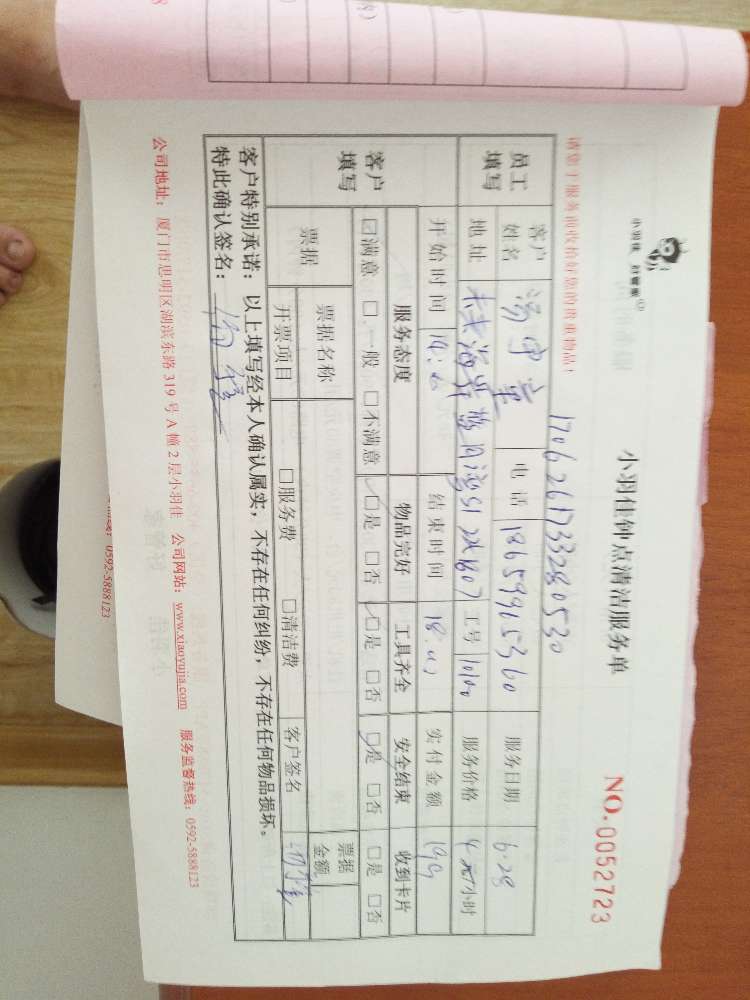 小羽佳 好管家
小羽佳钟点清洁服务单
NO.0052723
170626173280530
请您于服务前收拾好您的贵重物品！
员工填写
客户姓名
电话 18659965360
服务日期 6.28
地址
工号
服务价格 元/小时
开始时间
结束时间
实付金额 199
客户填写
服务态度 物品完好 工具齐全 安全结束 收到卡片
☑满意 □一般 □不满意 ☑是 □否 ☑是 □否 ☑是 □否 □是 □否
票据
票据名称
票据金额
开票项目 □服务费 □清洁费 客户签名
客户特别承诺：以上填写经本人确认属实，不存在任何纠纷，不存在任何物品损坏。
特此确认签名：
公司地址：厦门市思明区湖滨东路 319 号 A 幢 2 层小羽佳 公司网站：www.xiaoyujia.com 服务监督热线：0592-5888123
0592-5888123